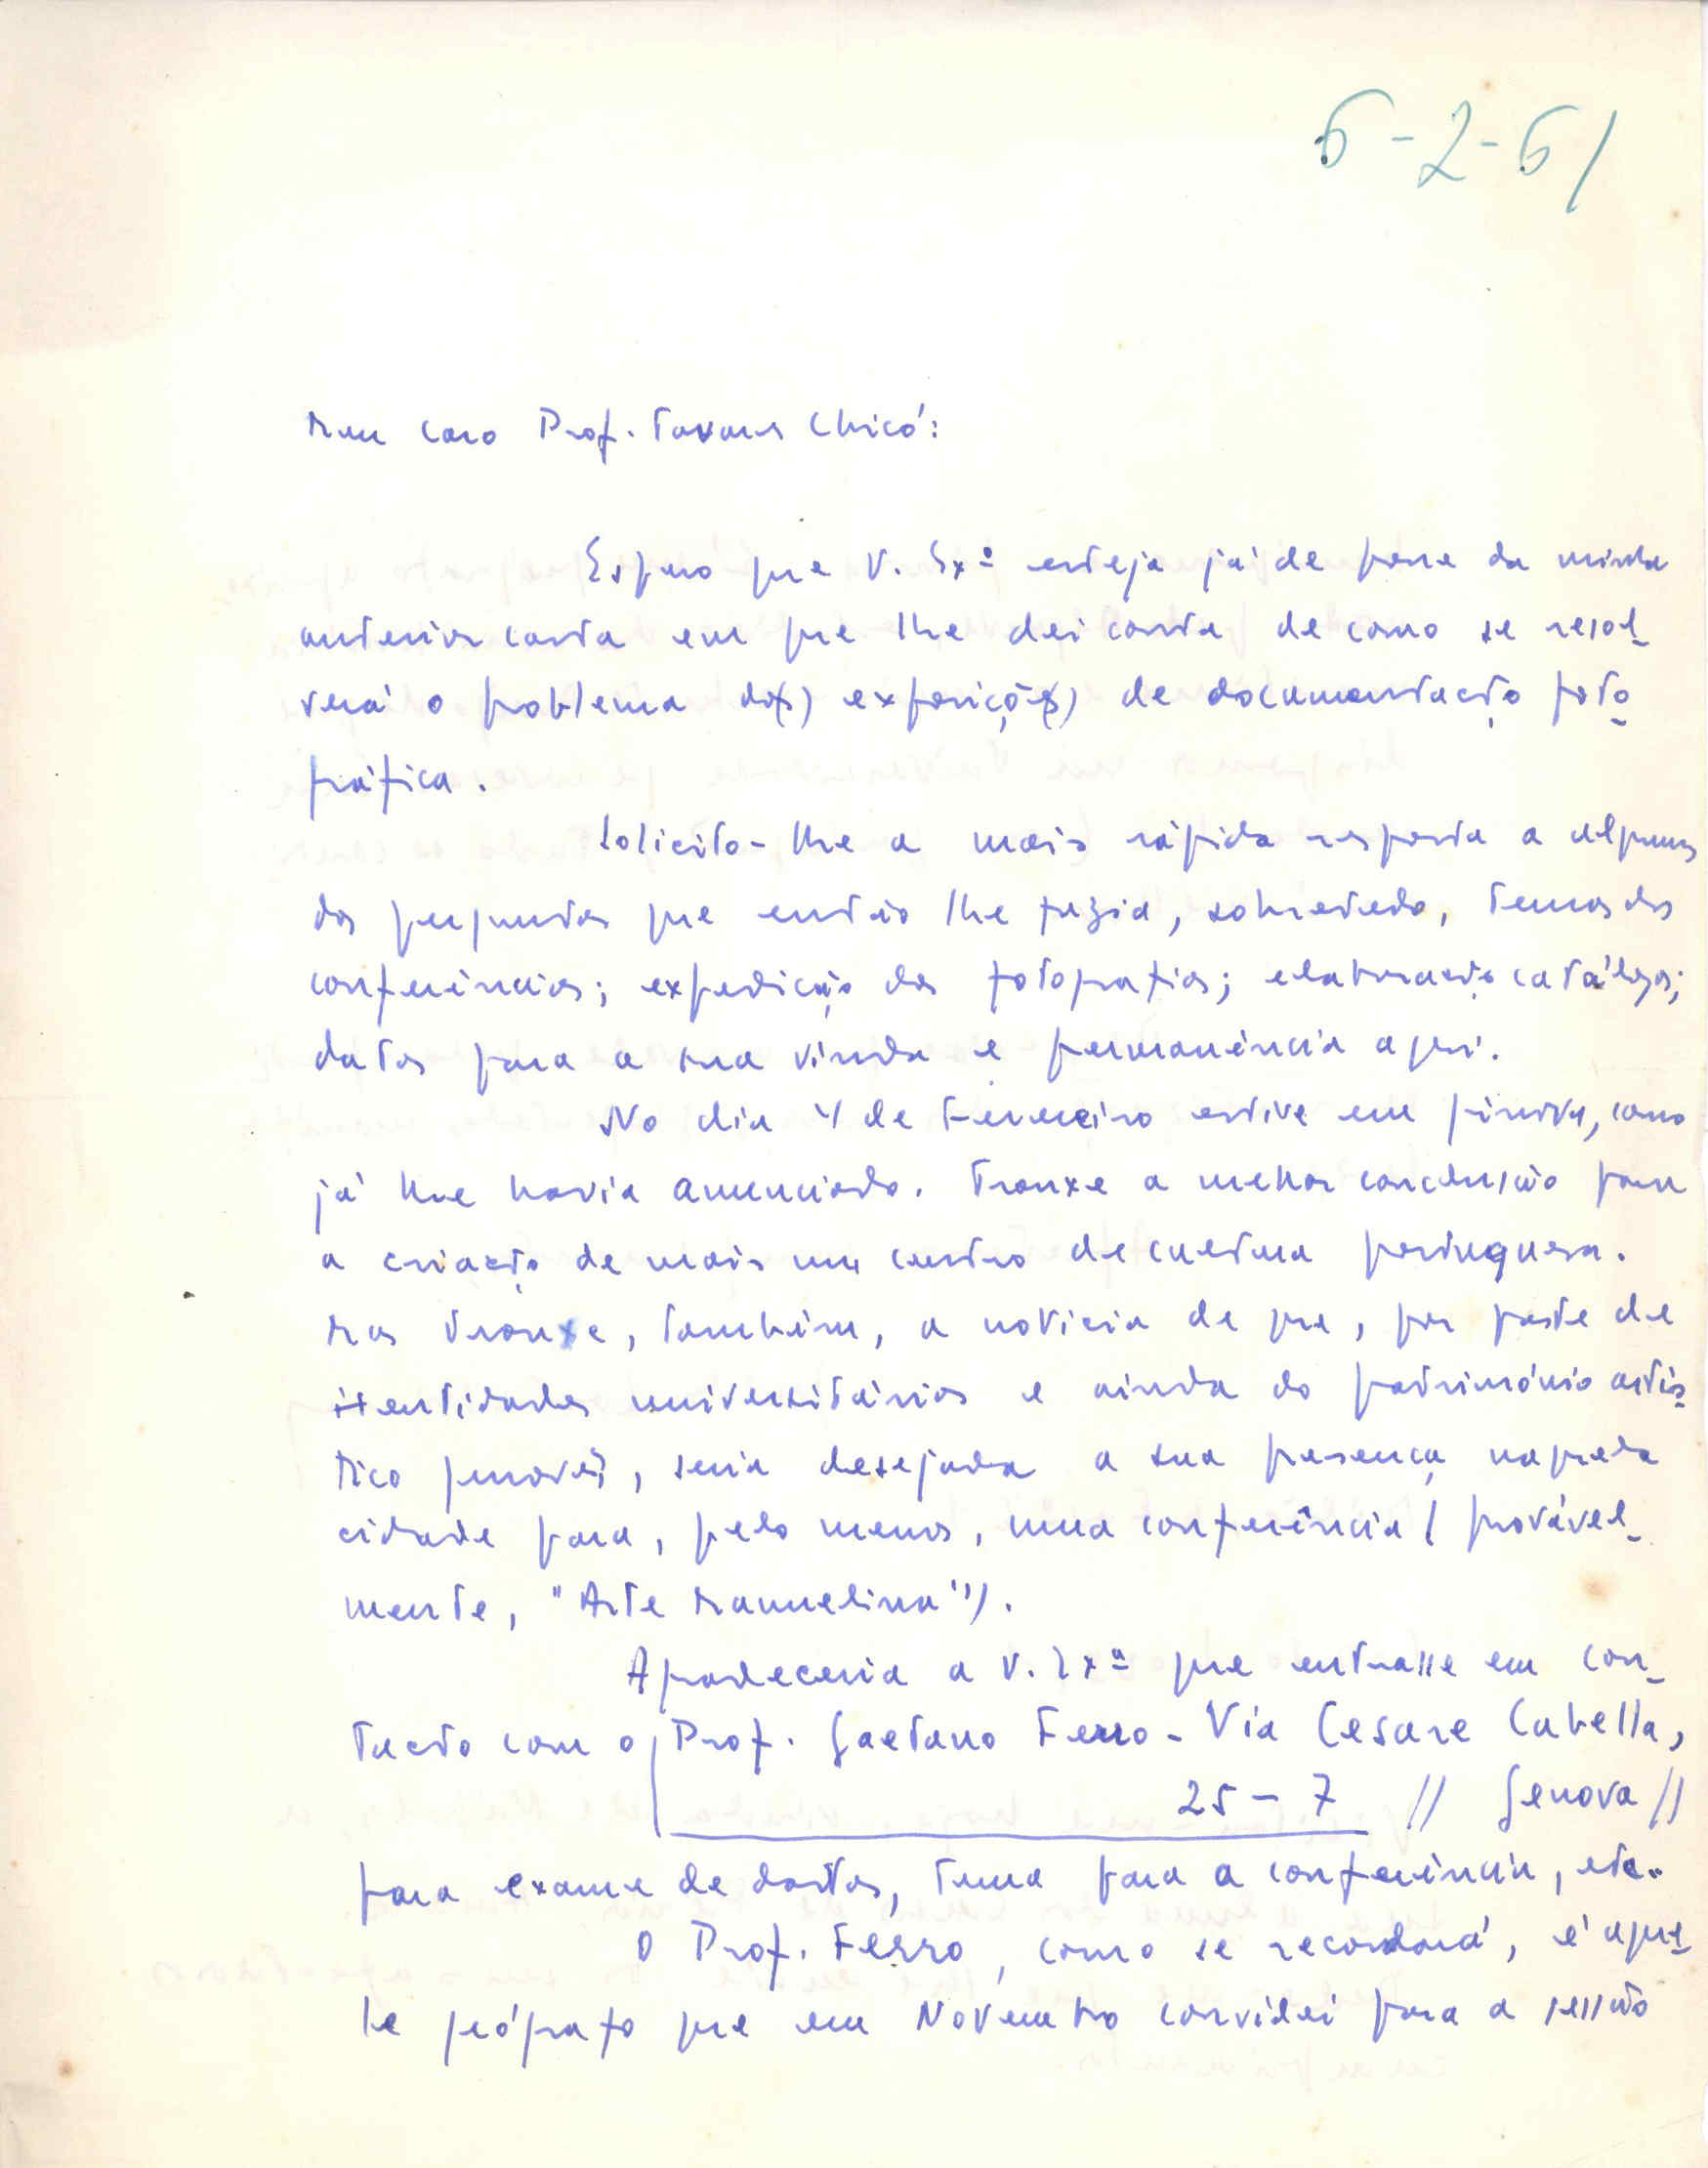 6-2-61
Meu caro Prof. Tavares Chicó:
Espero que V. Exª esteja já de posse da minha
anterior carta em que lhe dei conta de como se resol-
verá o problema da(s) exposição(s) de documentação foto-
gráfica.
Solicito-lhe a mais rápida resposta a algumas
das perguntas que então lhe fazia, sobretudo, temas das
conferências; expedição das fotografias; elaboração catálogos;
datas para a sua vinda e permanência aqui.
No dia 4 de Fevereiro estive em Génova, como
já lhe havia anunciado. Trouxe a melhor conclusão para
a criação de mais um centro de cultura portuguesa.
Mas trouxe, também, a notícia de que, por parte de
entidades universitárias e ainda do património artís-
tico genovês, seria desejada a sua presença naquela
cidade para, pelo menos, uma conferência (provável-
mente, "Arte Manuelina").
Agradeceria a V. Exª que entrasse em con-
tacto com o Prof. Gaetano Ferro - Via Cesare Cabella,
25-7 // Genova //
para exame de datas, tema para a conferência, etc..
O Prof. Ferro, como se recordará, é aque-
le geógrafo que em Novembro convidei para a sessão